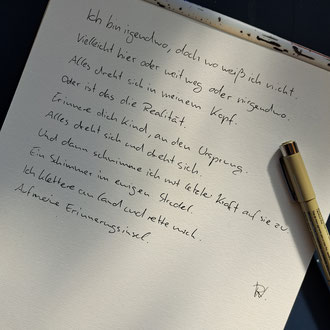 Ich bin irgendwo, doch wo weiß ich nicht.
Vielleicht hier oder weit weg oder nirgendwo.
Alles dreht sich in meinem Kopf.
Oder ist das die Realität.
Erinnere dich Kind, an den Ursprung.
Alles dreht sich und dreht sich.
Und dann schwimme ich mit letzter Kraft auf sie zu.
Ein Schimmer im ewigen Strudel.
Ich klettere an Land und rette mich.
Auf meine Erinnerungsinsel.